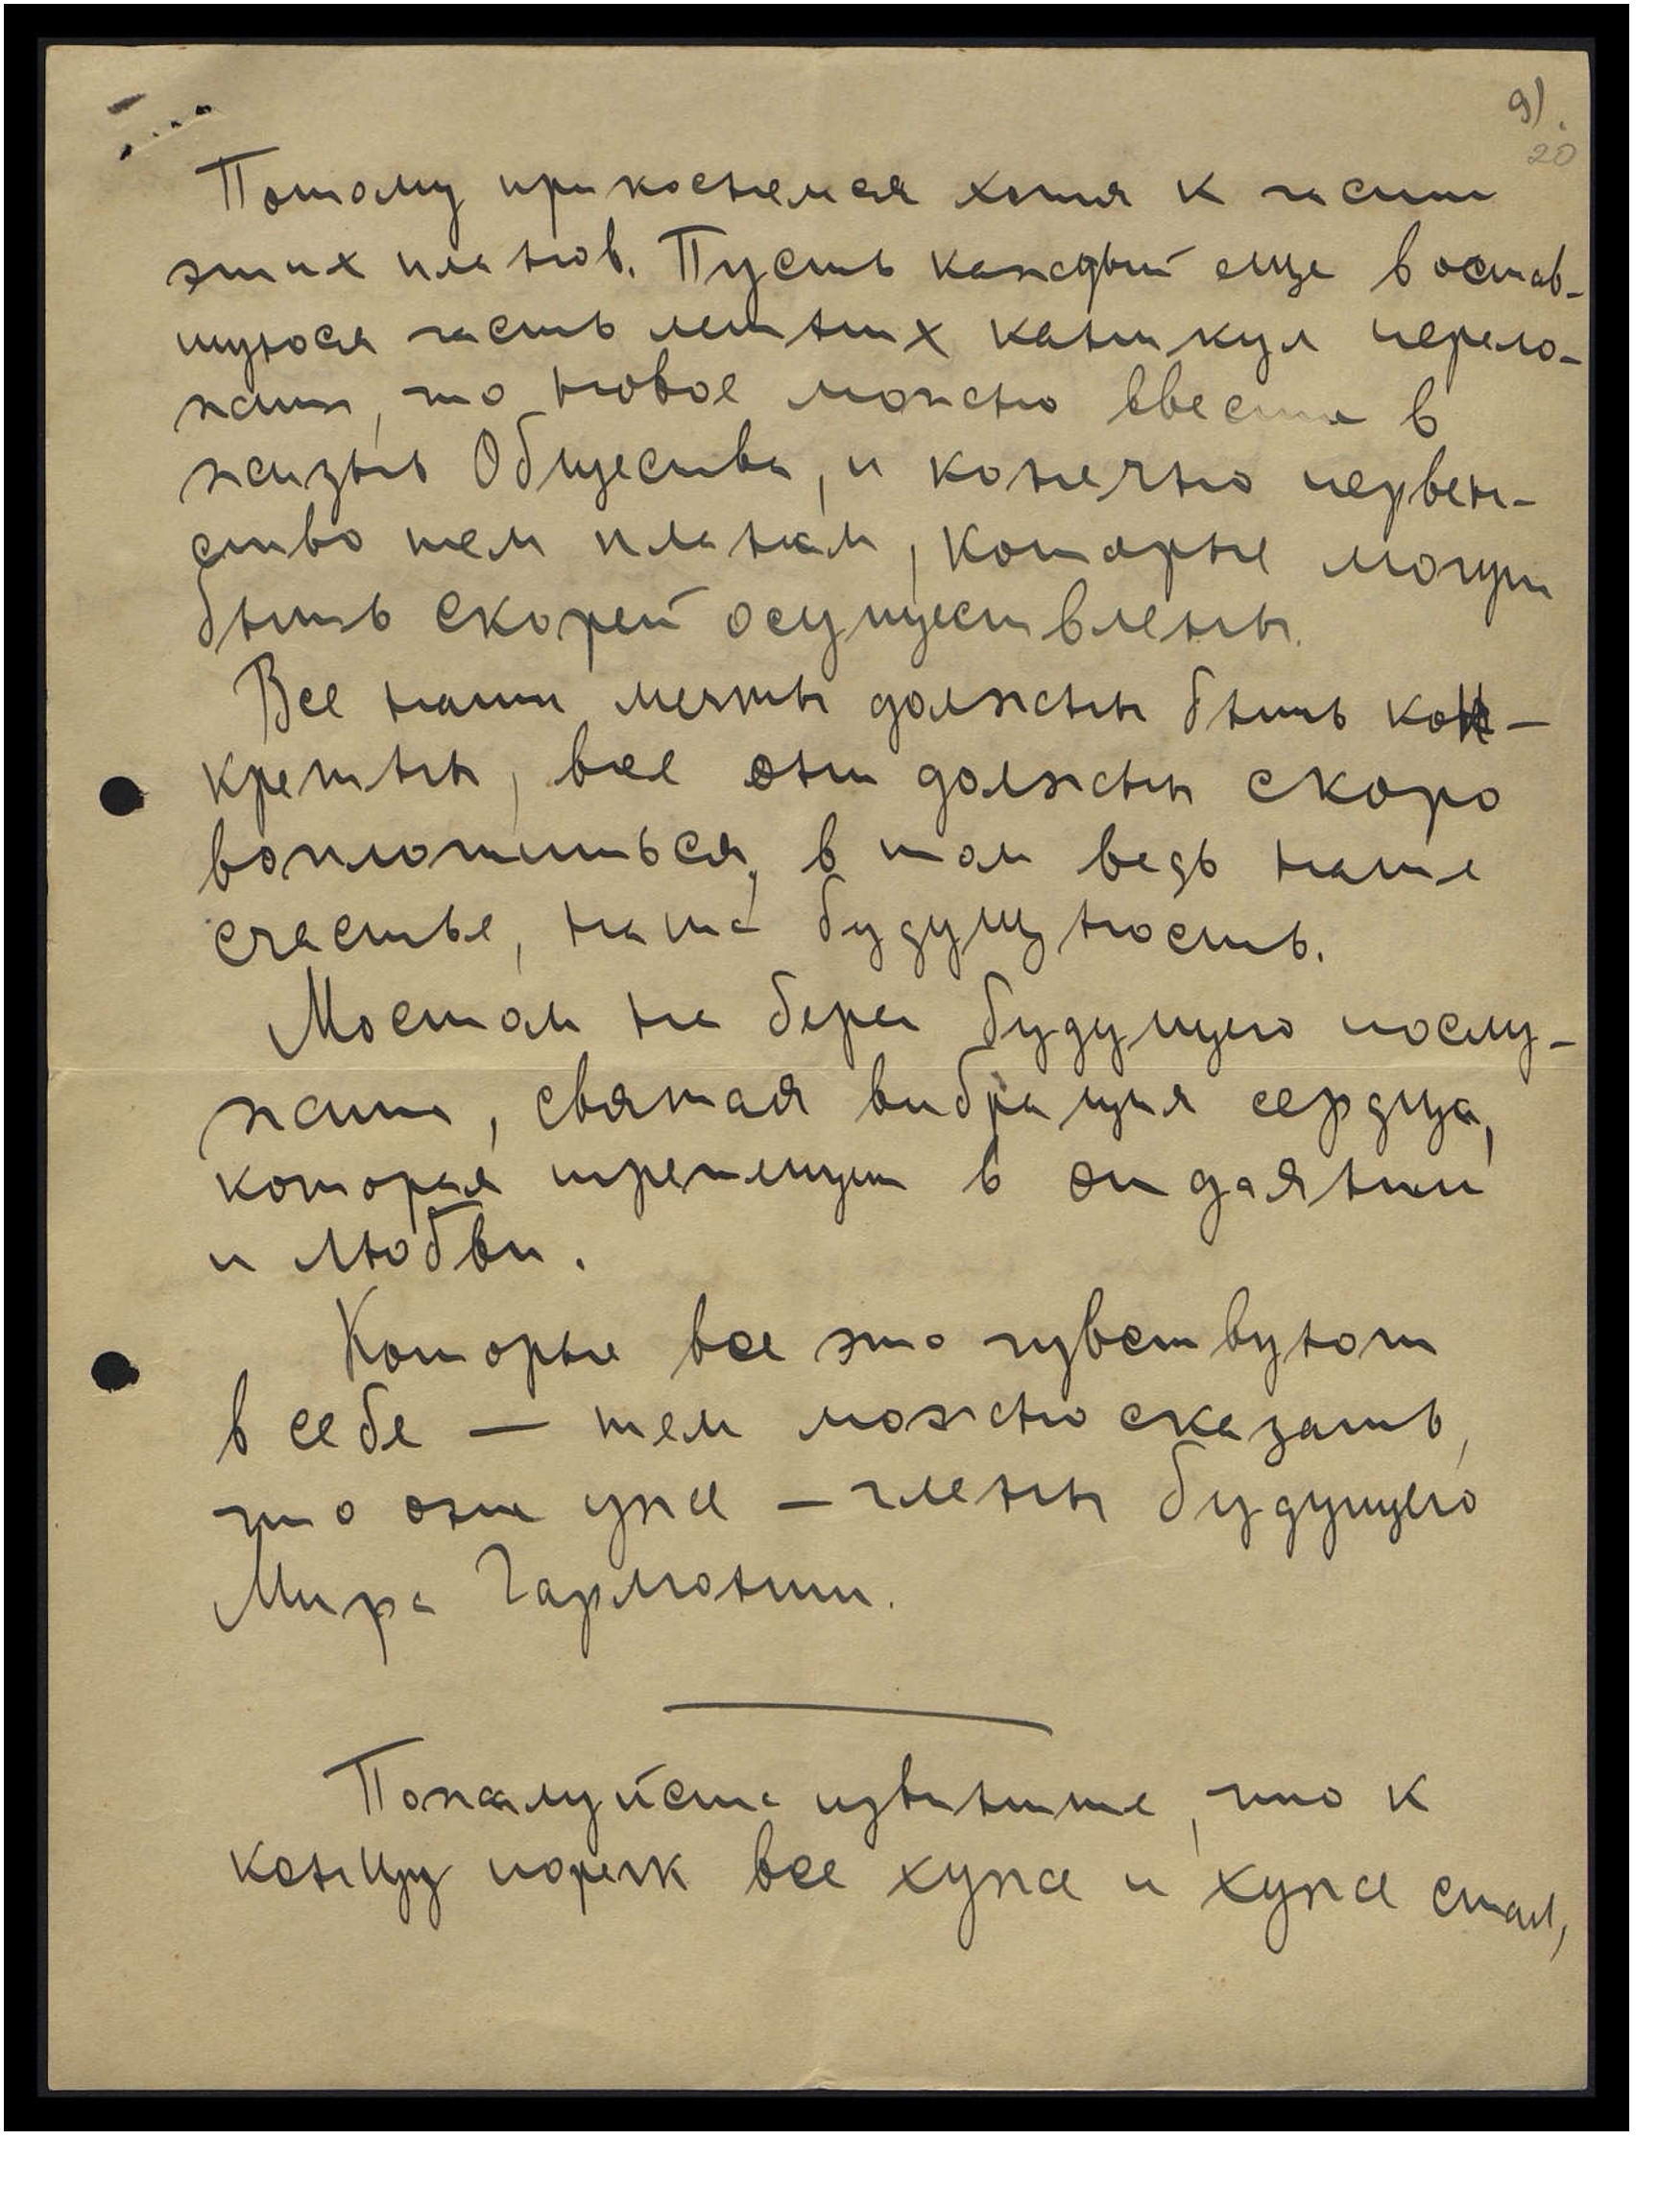 9).
20
Потому прикоснемся хотя к части
этих планов. Пусть каждый еще в остав-
шуюся часть летних каникул перело-
жит, что новое можно ввести в
жизнь Общества, и конечно первен-
ство тем планам, которые могут
быть скорей осуществлены.
Все наши мечты должны быть кон-
кретны, все они должны скоро
воплотиться, в том ведь наше
счастье, наша будущность.
Мостом на берег будущего послу-
жит, святая вибрация сердца,
которая трепещет в отдаянии
и любви.
Которые все это чувствуют
в себе — тем можно сказать,
что они уже — члены будущего
Мира Гармонии.
Пожалуйста извините, что к
концу почерк все хуже и хуже стал,